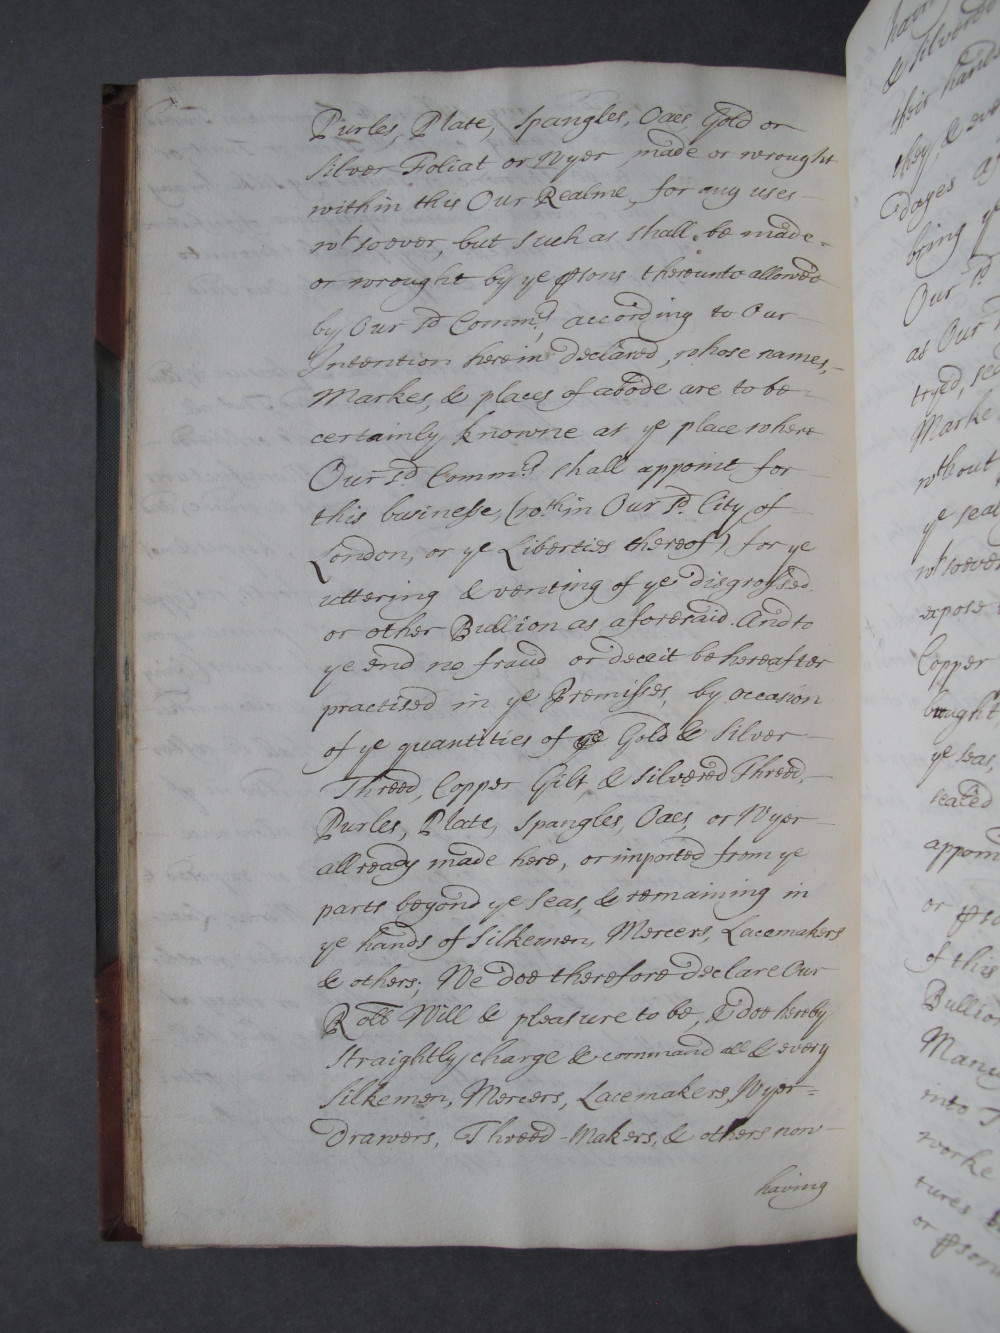 Purles, Plate, Spangles, Oaes, Gold or
Silver Foliat or Wyer, made or wrought
within this Our Realme, for any uses
wt. soever, but such as shall be made
or wrought by ye psons thereunto allowed
by Our sd. Commrs. according to Our
Intention herein Declared, whose names,
Markes, & places of abode are to be
certainly knowne at ye place where
Our sd. Commrs. shall appoint for
this businesse, (wthin Our sd. City of
London, or ye Liberties thereof) for ye
uttering & venting of ye disgrossed
or other Bullion as aforesaid. And to
ye end no fraud or deceit be hereafter
practised in ye Premisses, by occasion
of ye quantities of ye Gold & Silver
Threed, Copper Gilt, & Silvered Threed,
Purles, Plate, Spangles, Oaes, or Wyer
allready made here, or imported from ye
parts beyond ye Seas, & remaining in
ye hands of Silkemen, Mercers, Lacemakers
& others; We doe therefore declare Our
Roll Will & pleasure to be, & doe hereby
straightly charge & command all & every
Silkemen, Mercers, Lacemakers, Wyer=
Drawers, Threed-Makers, & others now
having
& Silvered
their hands
they, &
dayes
bring ye
Our sd.
as Our
tryed,
Marke
wthout
ye seal
wt. soever
expose
Copper
bought
ye Seas,
sealed
or
of this
Bullion
into
worke
tures
or psons